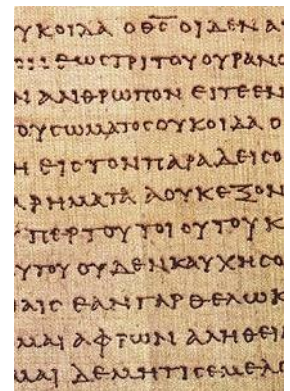 ΥΚΟΙΔΑ Ο Θ̅Ϲ̅ ΟΙΔΕΝ Α
ΕΩϹΤΡΙΤΟΥΟΥΡΑΝΟ
Ν ΑΝΘΡΩΠΟΝ ΕΙΤΕΕΝ
ΟΥϹΩΜΑΤΟϹΟΥΚΟΙΔΑ Ο
Η ΕΙϹΤΟΝΠΑΡΑΔΕΙϹΟ
ΑΡΗΜΑΤΑ ΑΟΥΚΕΞΟΝ
ΥΠΕΡΤΟΥΤΟΙΟΥΤΟΥΚ
ΥΤΟΥ ΟΥΔΕΝΚΑΥΧΗϹΟ
ΑΙϹ ΕΑΝΓΑΡ ΘΕΛΩΚ
ΜΑΙ ΑΦΡΩΝ ΑΛΗΘΕΙ
ΜΑΙ ΔΕΜΗΤΙϹΕΜΕΛΟ